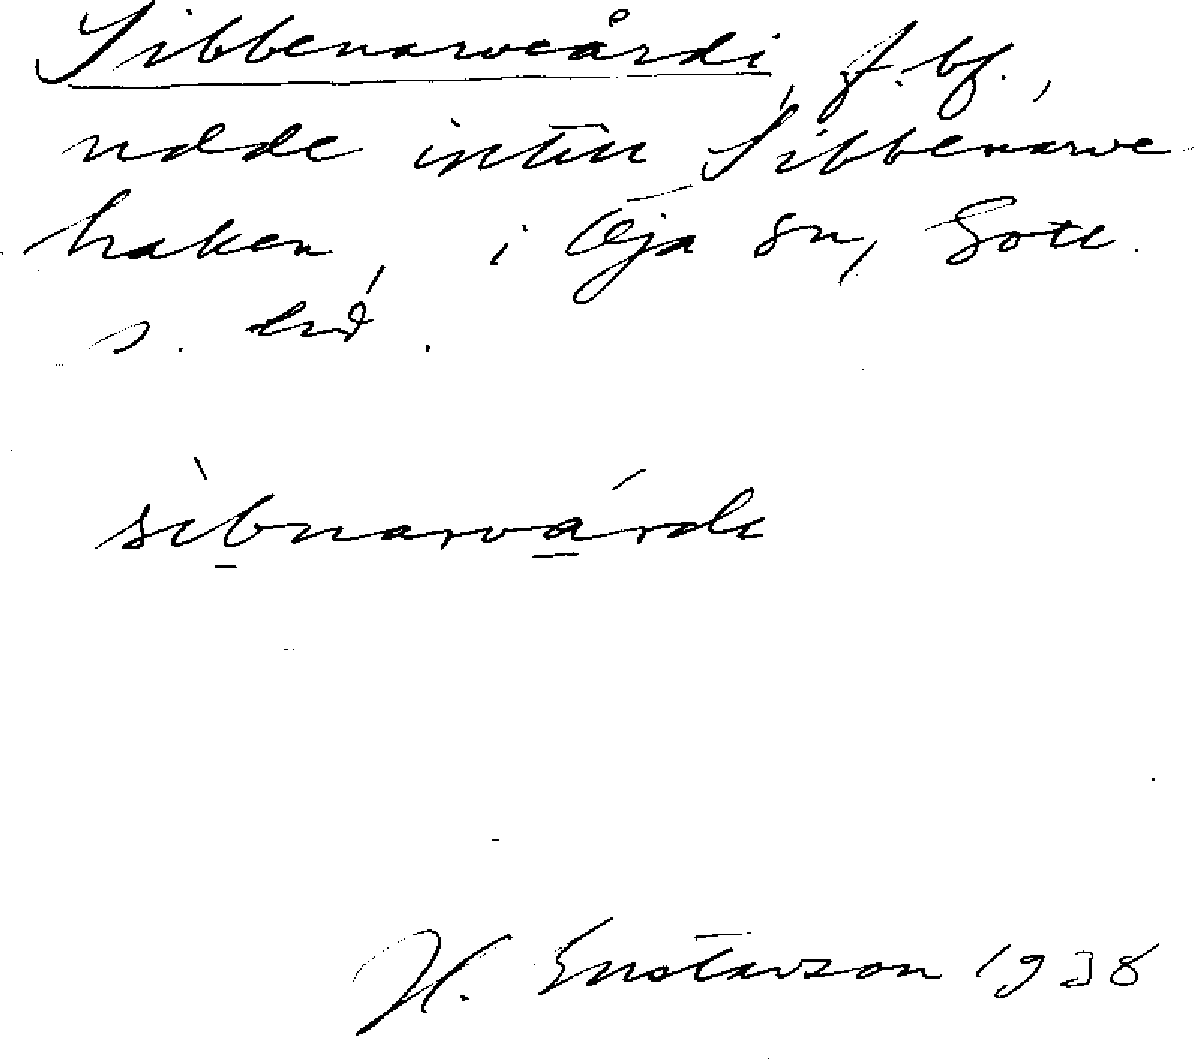 Sibbenarveårdi, f. bf.,
udde intill Sibbenarve
haken, i Öja sn, Gotl.
s. hd.
sìbnarvárdi
H. Gustavson 1938